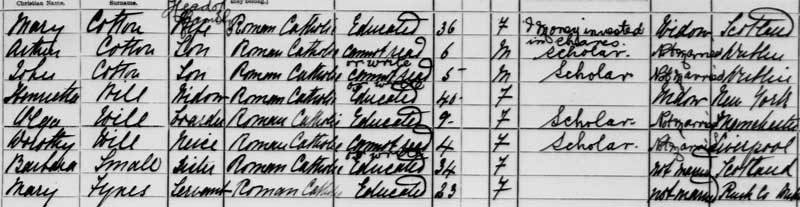 Christian Name. Surname. may belong.)
Mary Cotton Head of Family Wife Roman Catholic Educated 36 F & money invested in shares. Widow Scotland
Arthur Cotton Son Roman Catholic cannot read or write 6 M Scholar. Not married Dublin
John Cotton Son Roman Catholic cannot read or write 5 M Scholar Not Married Dublin
Henrietta Will Widow Roman Catholic Educated 40 F Widow New York
Olga Will boarder Roman Catholic Educated 9 F Scholar Not married Manchester
Dorothy Will Neice Roman Catholic cannot read or write 4 F Scholar. Not married Liverpool
Barbara Small Sister Roman Catholic Educated 34 F not married Scotland
Mary Fynes Servant Roman Catholic Educated 23 F not married Co